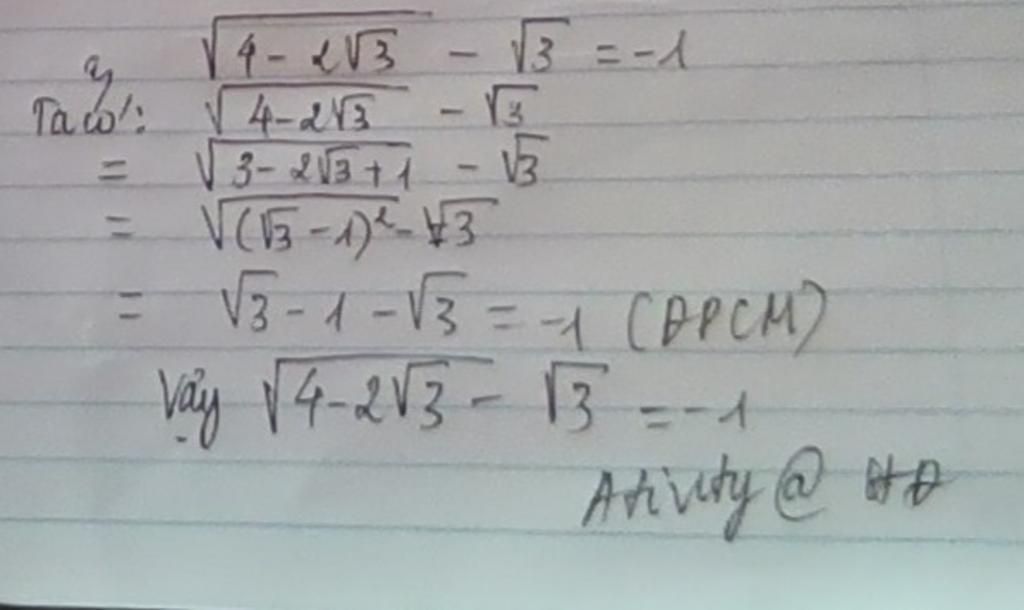 y √(4 - 2√3) - √3 = -1
Ta có: √(4 - 2√3) - √3
= √(3 - 2√3 + 1) - √3
= √((√3 - 1)²) - √3
= √3 - 1 - √3 = -1 (ĐPCM)
Vậy √(4 - 2√3) - √3 = -1
Ativity @